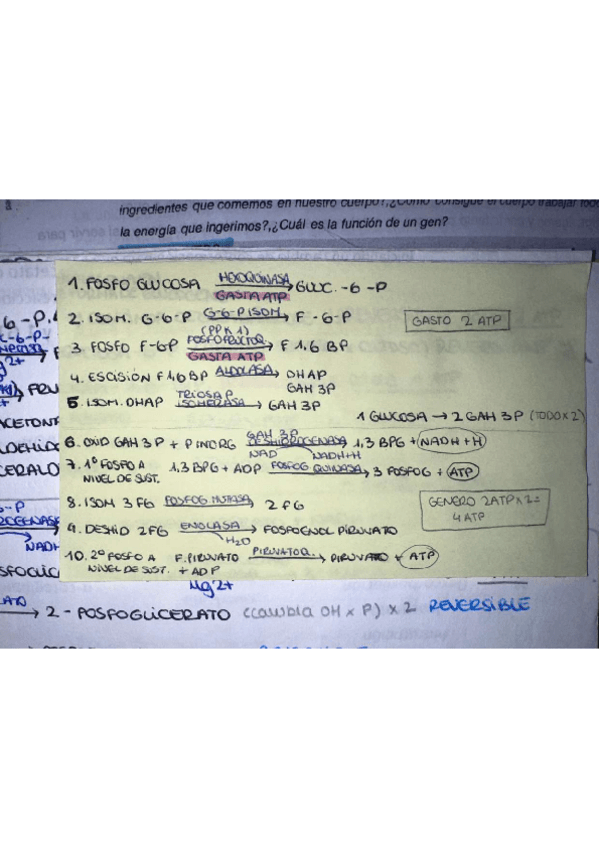 ingredientes que comemos en nuestro cuerpo?, ¿Cómo consigue el cuerpo trabajar
la energía que ingerimos?, ¿Cuál es la función de un gen?
1. FOSFO GLUCOSA HEXOQUINASA GASTA ATP → GLUC. -6-P
2. ISOM. G-6-P G-6-P ISOM → F-6-P
GASTO 2 ATP
3. FOSFO F-6P FOSFOFRUCTOQ. GASTA ATP → F 1,6 BP
4. ESCISIÓN F 1,6 BP ALDOLASA → DHAP
GAH 3P
5. ISOM. DHAP TRIOSA P ISOMERASA → GAH 3P
1 GLUCOSA → 2 GAH 3P (TODO X 2)
6. OXID GAH 3P + P INORG GAH 3P DESHIDROGENASA → 1,3 BPG + NADH+H
NAD NADH+H
7. 1º FOSFO A 1,3 BPG + ADP FOSFOG QUINASA → 3 FOSFOG + ATP
NIVEL DE SUST.
8. ISOM 3 FG FOSFOG MUTASA → 2 FG
GENERO 2ATP X 2=
4 ATP
9. DESHID 2FG ENOLASA → FOSFOENOL PIRUVATO
H2O
10. 2º FOSFO A F. PIRUVATO PIRUVATO Q. → PIRUVATO + ATP
NIVEL DE SUST. + ADP
Mg 2+
→ 2-FOSFOGLICERATO (cambia OH x P) x 2 REVERSIBLE